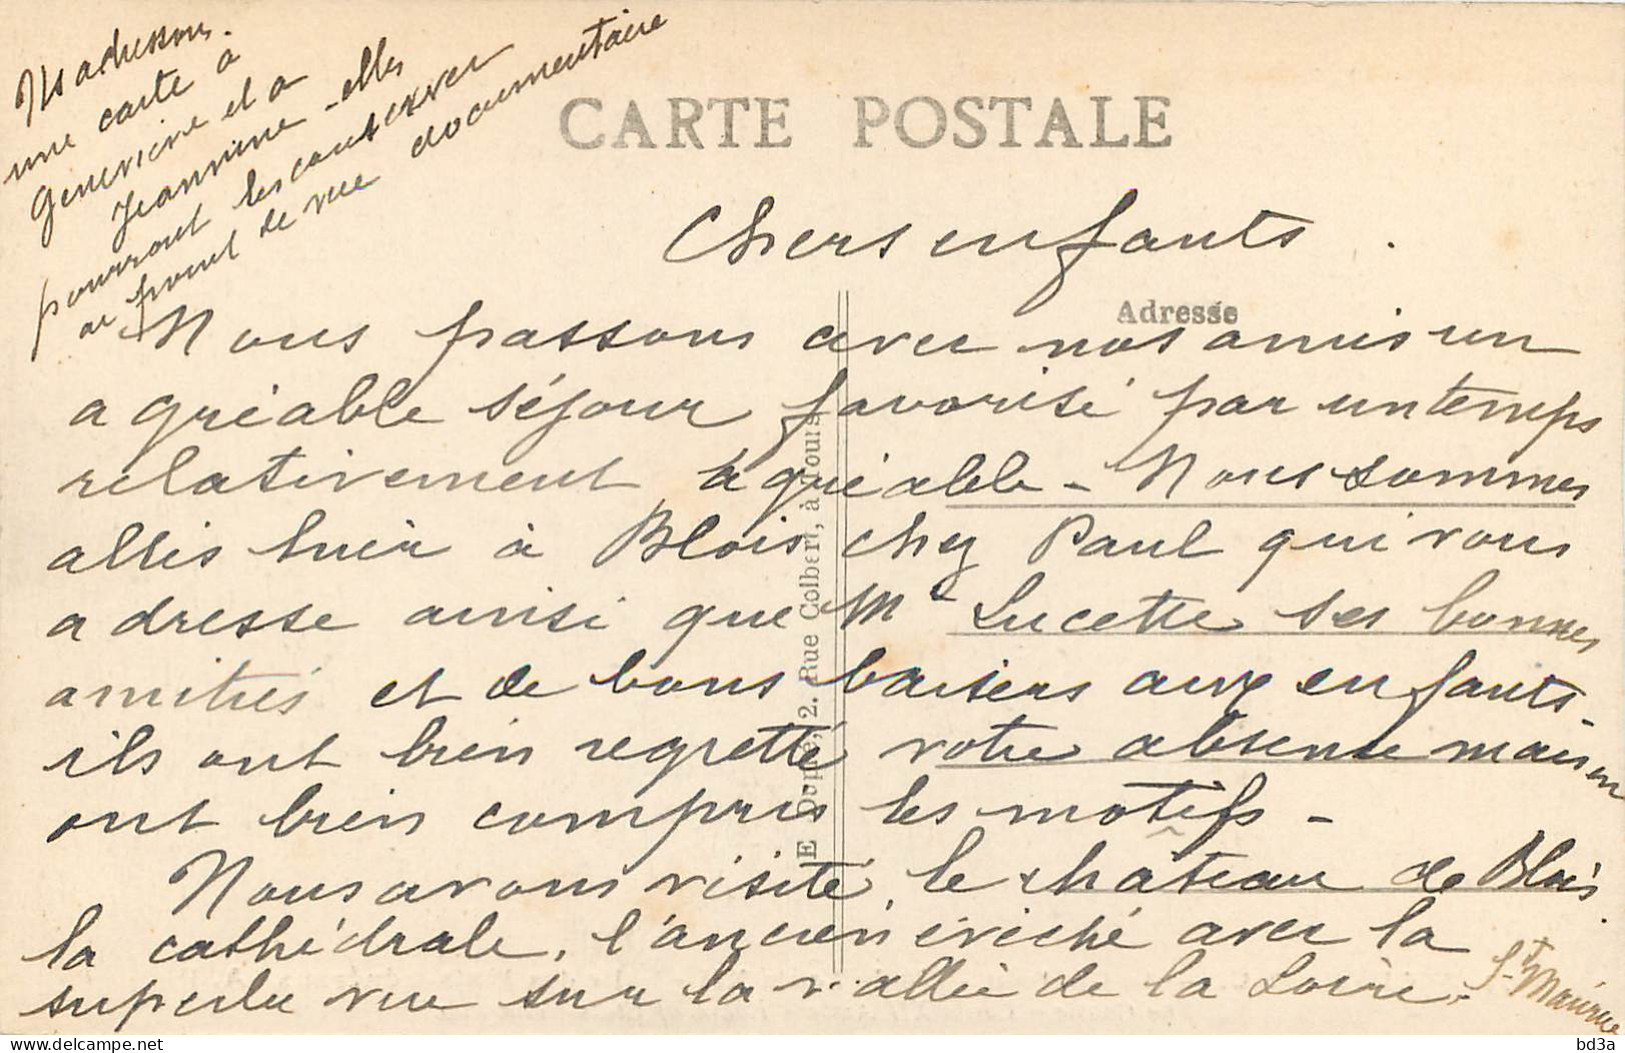 Ns adressons
une carte à
Geneviève et à
Jeannine - elles
pourront les conserver
au point de vue documentaire
CARTE POSTALE
Chers enfants.
Adresse
Nous passons avec nos amis un
agréable séjour favorisé par un temps
relativement agréable - Nous sommes
allés hier à Blois chez Paul qui vous
adresse ainsi que Me Lucette ses bonnes
amitiés et de bons baisers aux enfants -
ils ont bien regretté votre absence mais en
ont bien compris les motifs -
Nous avons visité le château de Blois,
la cathédrale, l'ancien évêché avec la
superbe vue sur la vallée de la Loire.
St Maurice
E Dupré, 2. Rue Colbert, à Tours
delcampe.net
bd3a